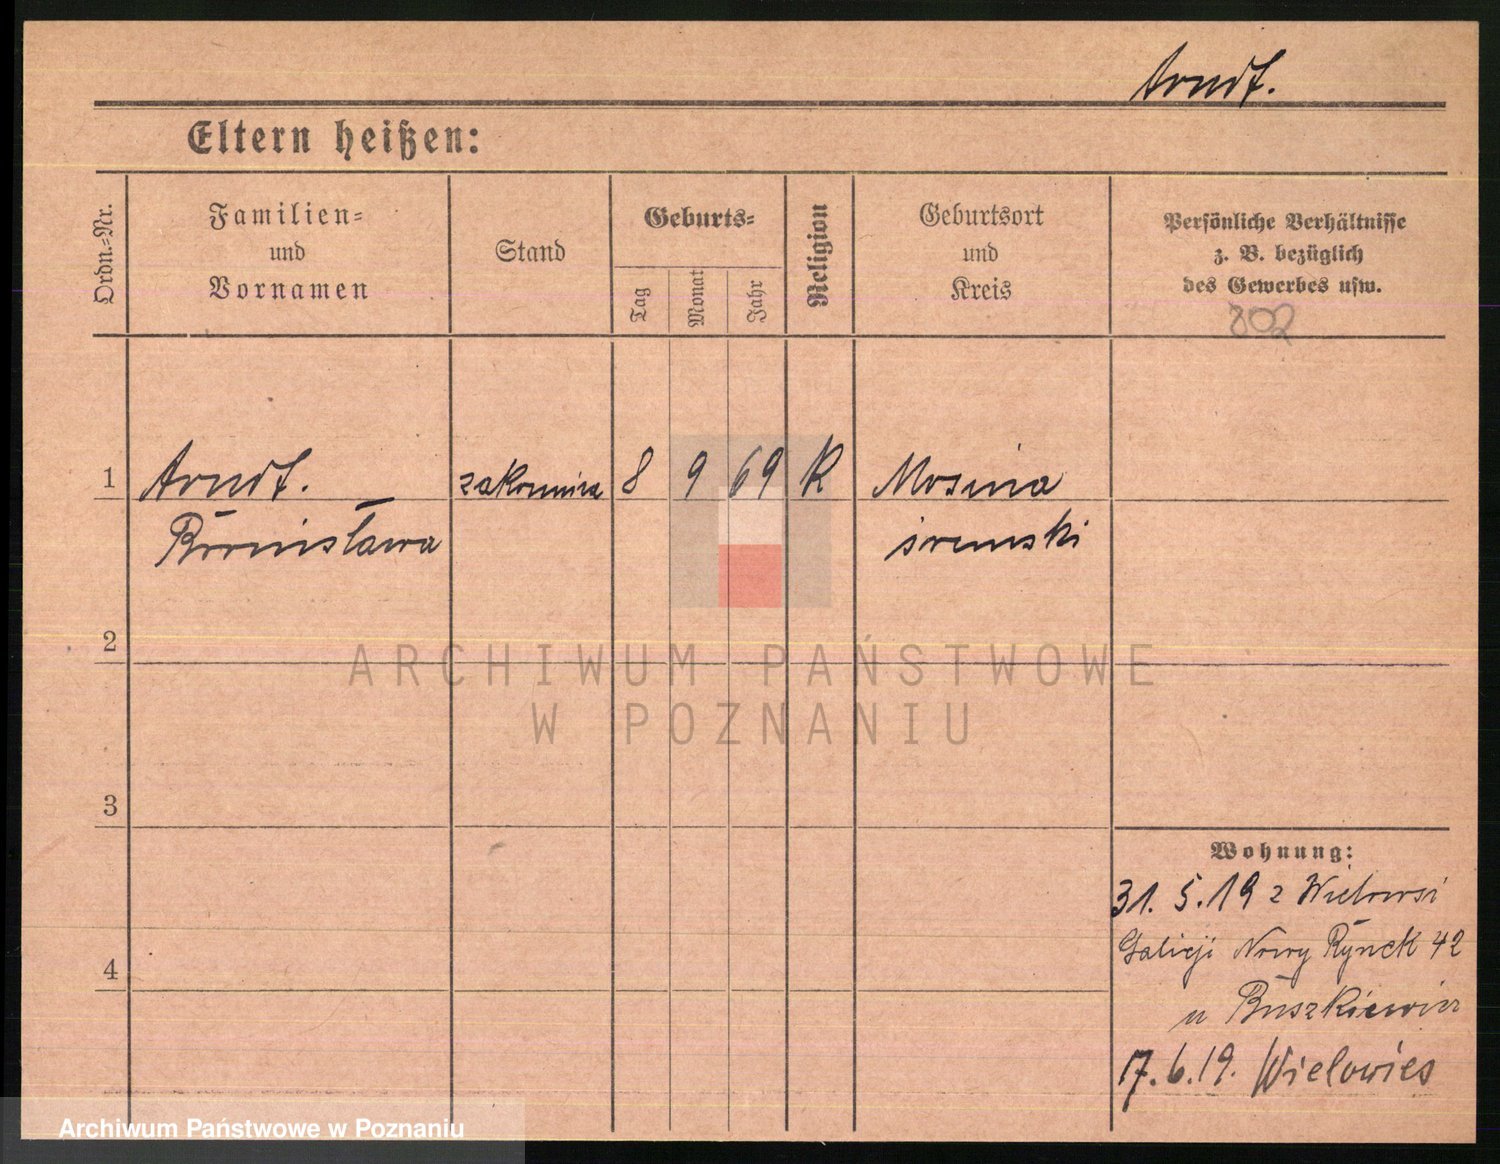 Arndt.
Eltern heißen:
Ordn.=Nr.
Familien=
und
Vornamen
Stand
Geburts=
Tag
Monat
Jahr
Religion
Geburtsort
und
Kreis
Persönliche Verhältnisse
z. B. bezüglich
des Gewerbes usw.
802
1
Arndt.
zakonnica
8 9 69 K
Mosina
Bronisława
śremski
2
ARCHIWUM PAŃSTWOWE
W POZNANIU
3
Wohnung:
31. 5. 19 z Wielowsi
Galicji Nowy Rynek 42
4
u Buszkiewicz
17. 6. 19. Wielowies
Archiwum Państwowe w Poznaniu